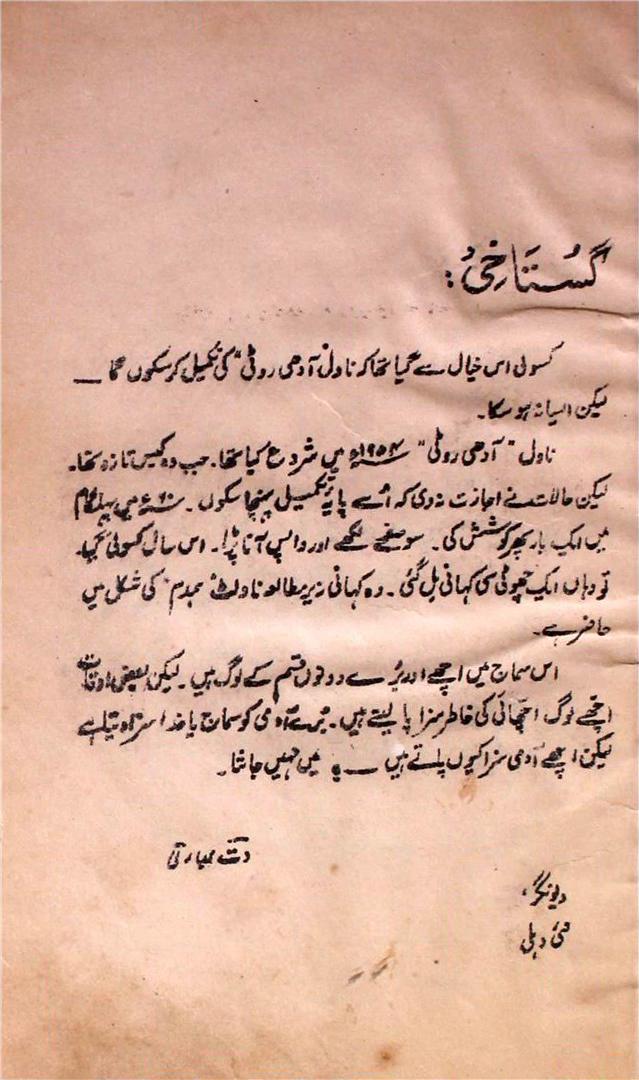 گُستَاخِیُ:
کسولی اس خیال سے گیا تھا کہ ناول "آدھی روٹی" کی تکمیل کر سکوں گا ــــ
لیکن ایسا نہ ہو سکا۔
ناول "آدھی روٹی" ۱۹۵۴ء میں شروع کیا تھا۔ جب وہ کیس تازہ تھا۔
لیکن حالات نے اجازت نہ دی کہ اُسے پایۂ تکمیل پہنچا سکوں۔ ۶۰ء میں پہلگام
میں ایک بار پھر کوشش کی۔ سو صفحے لکھے اور واپس آنا پڑا۔ اس سال کسولی گیا۔
تو وہاں ایک چھوٹی سی کہانی مل گئی۔ وہ کہانی زیرِ مطالعہ ناولٹ "ہمدم" کی شکل میں
حاضر ہے۔
اس سماج میں اچھے اور بُرے دونوں قسم کے لوگ ہیں۔ لیکن بعض اوقات
اچھے لوگ اچھائی کی خاطر سزا پا لیتے ہیں۔ بُرے آدمی کو سماج یا خدا سزا دیتا ہے
لیکن اچھے آدمی سزا کیوں پاتے ہیں ــــ ؟ میں نہیں جانتا۔
دت بھارتی
دیونگر،
نئی دہلی